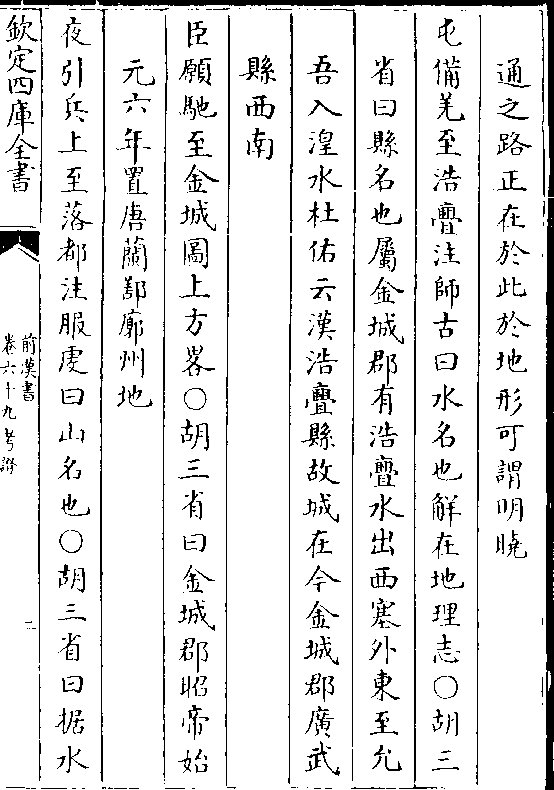 通之路正在於此於地形可謂明曉
屯備羌至浩亹注師古曰水名也解在地理志○胡三
省曰縣名也屬金城郡有浩亹水出西塞外東至允
吾入湟水杜佑云漢浩亹縣故城在今金城郡廣武
縣西南
臣願馳至金城圖上方畧○胡三省曰金城郡昭帝始
元六年置唐蘭鄯廓州地
夜引兵上至落都注服虔曰山名也○胡三省曰据水
欽定四庫全書
前漢書
卷六十九考證
二